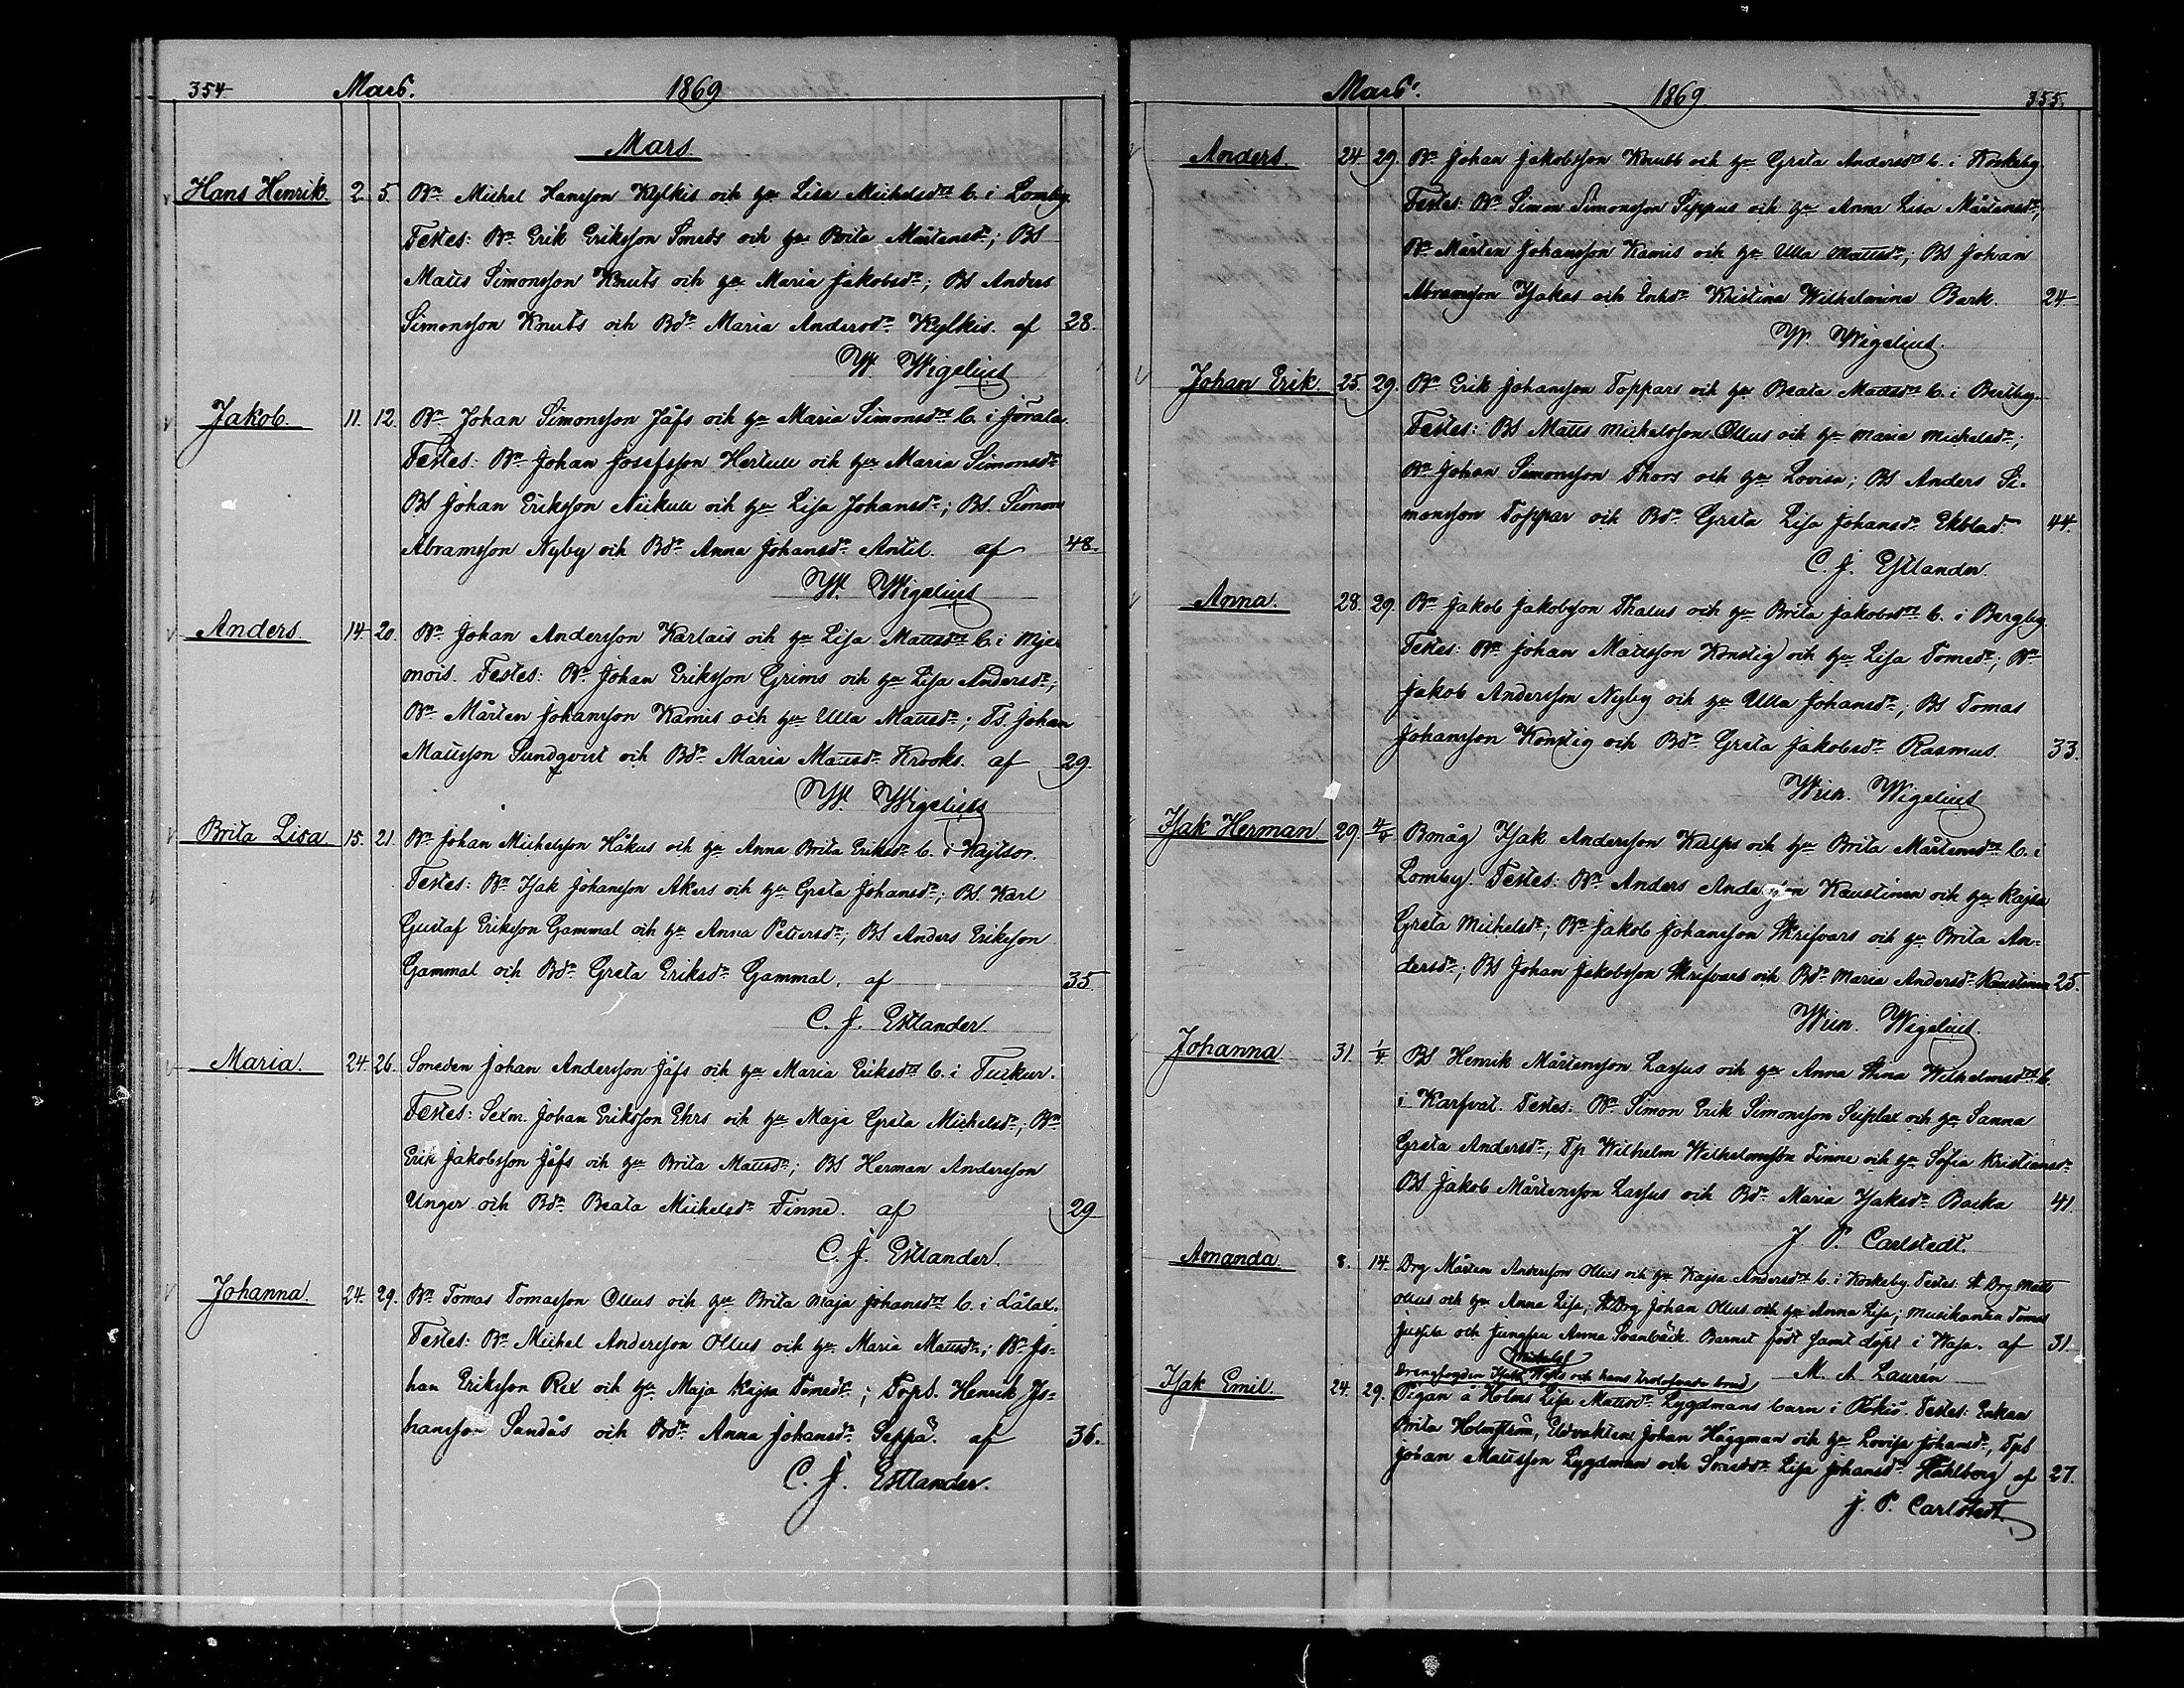 354 Mars. 1869
Mars
Hans Henrik. 2. 5. Bn Michel Hansson Kylkis och hu Lisa Michelsdrs b. i Lomby.
Testes: Bn Erik Eriksson Smeds och hu Brita Mårtensdr; BS
Matts Simonsson Knuts och hu Maria Jakobsdr; BS Anders
Simonsson Knuts och Bdr Maria Andersdr Kylkis. af 28.
W. Wigelius
Jakob. 11. 12. Bn Johan Simonsson Jåfs och hu Maria Simonsdrs b. i Jörala.
Testes: Bn Johan Josefsson Hertull och hu Maria Simonsdr
BS Johan Eriksson Neikull och hu Lisa Johansdr; BS. Simon
Abramsson Nyby och Bdr Anna Johansdr Antil. af 48.
W. Wigelius
Anders. 14. 20. Bn Johan Andersson Karlais och hu Lisa Mattsdrs b. i Mjel
mois. Testes: Bn Johan Eriksson Grims och hu Lisa Andersdr;
Bn Mårten Johansson Kamis och hu Ulla Mattsdr; TS. Johan
Mattsson Sundqvist och Bdr Maria Mattsdr Krooks. af 29.
W. Wigelius
Brita Lisa. 15. 21. Bn Johan Michelsson Håkus och hu Anna Brita Eriksdrs b. i Kajtsor.
Testes: Bn Isak Johansson Akers och hu Greta Johansdr; BS. Karl
Gustaf Eriksson Gammal och hu Anna Pettersdr; BS Anders Eriksson
Gammal och Bdr Greta Eriksdr Gammal. af 35.
C. J. Estlander.
Maria. 24. 26. Smeden Johan Andersson Jåfs och hu Maria Eriksdrs b. i Tuckur.
Testes: Sexm. Johan Eriksson Ehrs och hu Maja Greta Michelsdr; Bn
Erik Jakobsson Jåfs och hu Brita Mattsdr; BS Herman Andersson
Unger och Bdr Beata Michelsdr Finne. af 29
C. J. Estlander.
Johanna. 24. 29. Bn Tomas Tomasson Ollus och hu Brita Maja Johansdrs b. i Lålax.
Testes: Bn Michel Andersson Ollus och hu Maria Mattsdr; Bn Jo-
han Eriksson Rex och hu Maja Kajsa Tomasdr; TorpS. Henrik Jo-
hansson Sandås och Bdr Anna Johansdr Seppä. af 36.
C. J. Estlander.
Mars. 1869 355.
Anders. 24 29. Bn Johan Jakobsson Knubb och hu Greta Andersdrs b. i Koskeby
Testes: Bn Simon Simonsson Sippus och hu Anna Lisa Mårtensdr;
Bn Mårten Johansson Kamis och hu Ulla Mattsdr; BS Johan
Abramsson Isakas och Kristina Wilhelmina Bark. 24
W. Wigelius.
Johan Erik. 25. 29. Bn Erik Johansson Toppars och hu Beata Mattsdrs b. i Bertby.
Testes: BS Matts Michelsson Ollus och hu Maria Michelsdr;
Bn Johan Simonsson Thors och hu Lovisa; BS Anders Si-
monsson Toppar och Bdr Greta Lisa Johansdr Ekblad. 44.
C. J. Estlander.
Anna. 28. 29. Bn Jakob Jakobsson Thalus och hu Brita Jakobsdrs b. i Bergby
Testes: Bn Johan Mattsson Konstig och hu Lisa Tomasdr; Bn
Jakob Andersson Nyby och hu Ulla Johansdr; BS Tomas
Johansson Konstig och Bdr Greta Jakobsdr Rasmus. 33.
Wilh. Wigelius
Isak Herman 29. 4/4 Bmåg Isak Andersson Kulps och hu Brita Mårtensdrs b. i
Lomby. Testes: Bn Anders Andersson Kaustinen och hu Kajsa
Greta Michelsdr; Bn Jakob Johansson Skrifvars och hu Brita An-
dersdr; BS Johan Jakobsson Skrifvars och Bdr Maria Andersdr Kaustinen 25.
Wilh. Wigelius.
Johanna 31. 1/4 BS Henrik Mårtensson Lassus och hu Anna Stina Wilhelmsdrs b.
i Karfvat. Testes: Bn Simon Erik Simonsson Seiplax och hu Sanna
Greta Andersdr; Tp Wilhelm Wilhelmsson Finne och hu Sofia Kristiansdr
BS Jakob Mårtensson Lassus och Bdr Maria Isaksdr Backa 41.
J. P. Carlstedt.
Amanda. 8. 14. Drg Mårten Anderssons Ollus och hu Kajsa Andersdrs b. i Koskeby. Testes: Drg Matts
Ollus och hu Anna Lisa; Drg Johan Ollus och hu Anna Lisa; musikanten Tomas
Jussila och Jungfru Anna Svanbäck. Barnet födt samt döpt i Wasa. af 31
M. A. Laurén
Isak Emil. 24. 29. Drengfogden Isak Michelss. Wefts och hans trolofvade brud
Pigan å Holms Lisa Mattsdr Lygdmans barn i Rökiö. Testes: Enkan
Brita Holmström, Eldvakten Johan Häggman och hu Lovisa Johansdr, TpS
Johan Mattsson Lygdman och Smedsdr Lisa Johansdr Ståhlberg af 27.
J. P. Carlstedt.